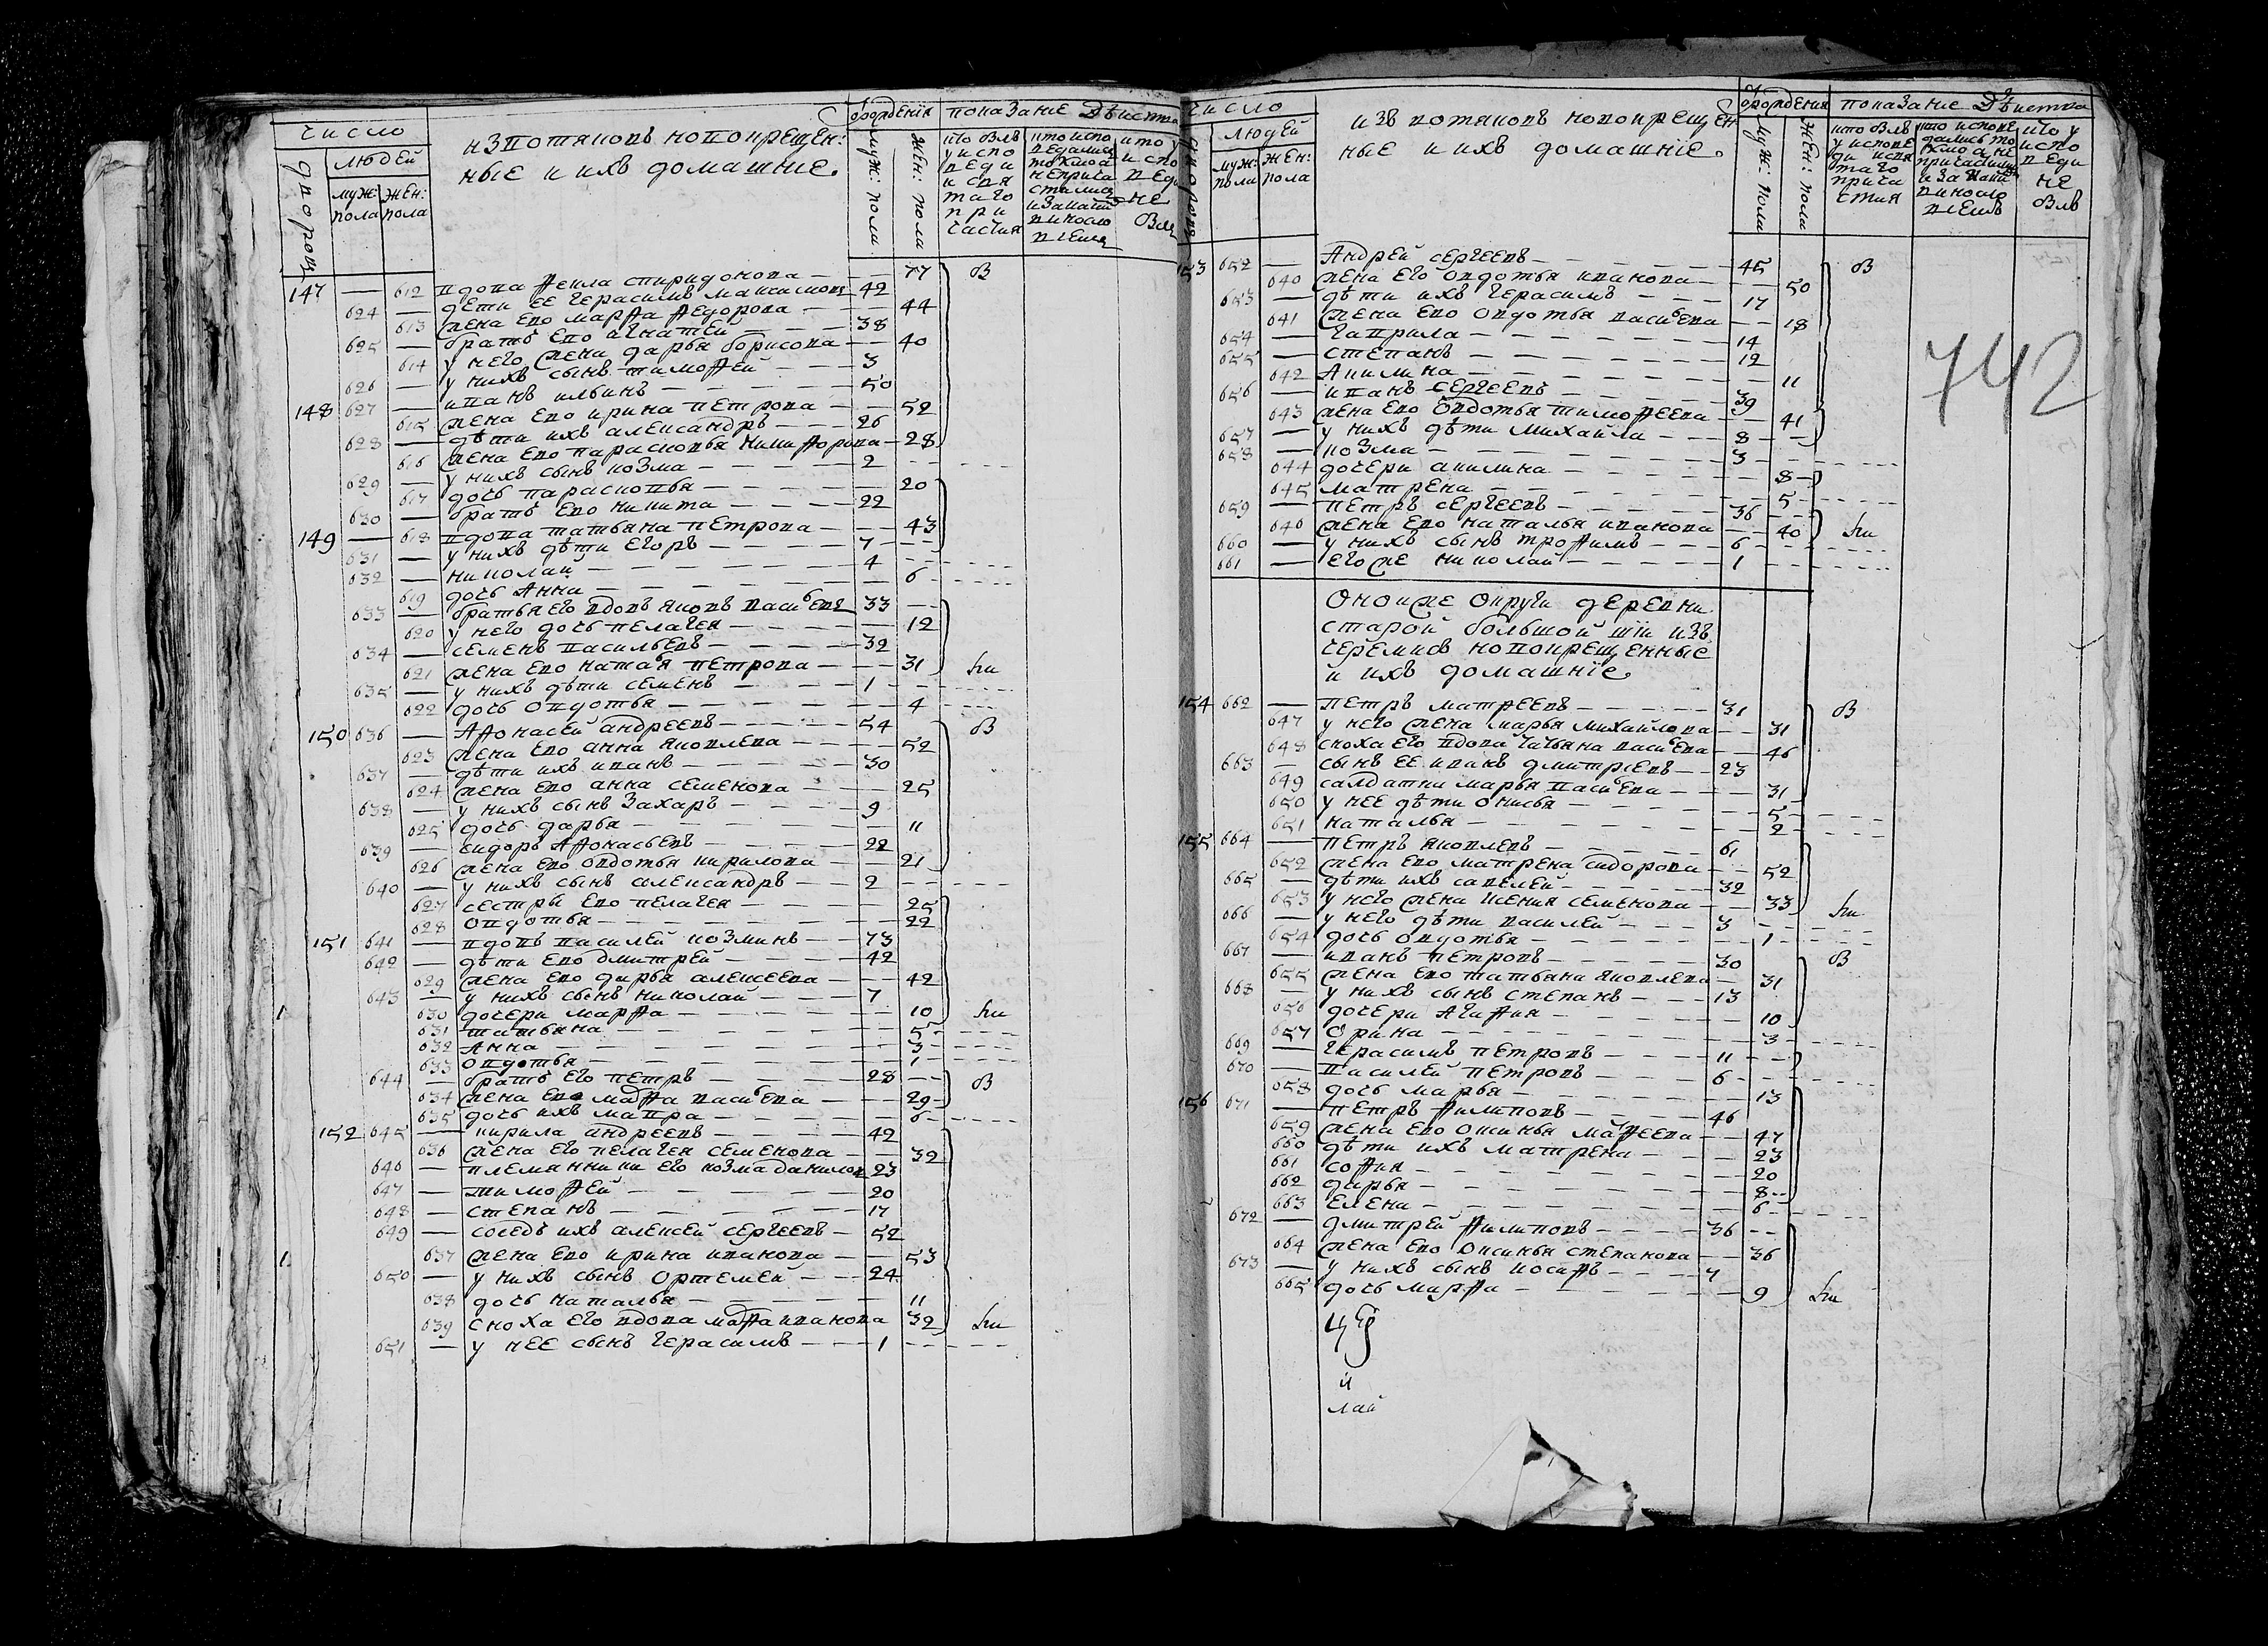 число
дворовъ
людей
муж: пола
жен: пола
из вотяковъ новокрещен:
ные и ихъ домашние.
от рождения
муж: пола
жен: пола
показание действа
кто былъ у исповеди и святаго причастия
147 — 612 вдова Фекла спиридонова — — 77 В
624 — дети ее герасимъ максимовъ 42
613 жена ево марфа федорова — — 44
625 — братъ ево игнатей — — — 38
614 у него жена дарья борисова — — 40
626 — у нихъ сынъ тимофей — — — 3
148 627 — иванъ ильинъ — — — 50
615 жена ево ирина петрова — — 52
628 — дѣти ихъ александръ — — — 26
616 жена ево парасковья никифорова — 28
629 — у нихъ сынъ козма — — — 2
617 дочь парасковья — — — 20
630 — братъ ево никита — — — 22
149 — 618 вдова татьяна петрова — — — 43
631 — у нихъ дѣти егоръ — — — 7
632 — николай — — — 4
619 дочь Анна — — — 6
633 — братья его вдовъ яковъ васильевъ 33
620 у него дочь пелагея — — — 12
634 — семенъ васильевъ — — — 32
621 жена ево наталья петрова — — — 31
635 — у нихъ дѣти семенъ — — — 1
622 дочь овдотья — — — 4
150 636 — Афонасей андреевъ — — — 54 В
623 жена ево анна яковлева — — — 52
637 — дѣти ихъ иванъ — — — 30
624 жена ево анна семенова — — — 25
638 — у нихъ сынъ Захаръ — — — 9
625 дочь дарья — — — 11
639 — сидоръ Афонасьевъ — — — 22
626 жена ево овдотья кирилова — — 21
640 — у нихъ сынъ александръ — — 2
627 сестры ево пелагея — — — 25
628 овдотья — — — 22
151 641 — вдовъ василей козминъ — — 73
642 — дѣти ево дмитрей — — — 42
629 жена ево дарья алексеева — — 42
643 — у нихъ сынъ николай — — — 7
630 дочери марфа — — — 10
631 татьяна — — — 5
632 Анна — — — 3
633 овдотья — — — 1
644 — братъ его петръ — — — 28 В
634 жена ево марфа васильева — — 29
635 дочь ихъ мавра — — — 6
152 645 — кирила андреевъ — — — 42
636 жена его пелагея семенова — — 32
646 — племянники его козма даниловъ 23
647 — тимофей — — — 20
648 — степанъ — — — 17
649 — соседъ ихъ алексей сергеевъ — 52
637 жена ево ирина иванова — — 53
650 — у нихъ сынъ ортемей — — 24
638 дочь наталья — — — 11
639 сноха его вдова марфа иванова 32
651 — у нее сынъ герасимъ — — 1
число
людей
муж: пола
жен: пола
изъ вотяковъ новокрещен
ные и ихъ домашние.
от рождения
муж: пола
жен: пола
показание дѣиства
742
153 652 — Андрей сергеевъ — — — 45 В
640 жена его овдотья иванова — — 50
653 — дѣти ихъ герасимъ — — — 17
641 жена ево овдотья васильева — — 18
654 — гаврила — — — 14
655 — степанъ — — — 12
642 Акилина — — — 11
656 — иванъ сергеевъ — — — 39
643 жена ево овдотья тимофеева — — 41
657 — у нихъ дѣти михайла — — — 8
658 — козма — — — 3
644 дочери акилина — — — 8
645 матрена — — — 5
659 — петръ сергеевъ — — — 36
646 жена ево наталья иванова — — 40
660 — у нихъ сынъ трофимъ — — — 6
661 — его же николай — — — 1
Оной же округи деревни
старой большой ши изъ
черемисъ новокрещенные
и ихъ домашние
154 662 — петръ матфеевъ — — — 31 В
647 у него жена марья михайлова — — 31
648 сноха его вдова татьяна васильева — 46
663 — сынъ ее иванъ дмитриевъ — — 23
649 салдатки марья васильева — — 31
650 у нее дѣти онисья — — — 5
651 наталья — — — 2
155 664 — петръ яковлевъ — — — 61
652 жена ево матрена сидорова — — 52
665 — дѣти ихъ савелей — — — 32
653 у него жена ксения семенова — — 33
666 — у него дѣти василей — — — 3
654 дочь овдотья — — — 1
667 — иванъ петровъ — — — 30 В
655 жена ево татьяна яковлева — 31
668 — у нихъ сынъ степанъ — — — 13
656 дочери Агафия — — — 10
657 орина — — — 3
669 — герасимъ петровъ — — — 11
670 — василей петровъ — — — 6
658 дочь марья — — — 13
156 671 — петръ филиповъ — — — 46
659 жена ево оксинья матфеева — — 47
660 дѣти ихъ матрена — — — 23
661 софия — — — 20
662 дарья — — — 8
663 елена — — — 6
672 — дмитрей филиповъ — — — 36
664 жена ево оксинья степанова — — 36
673 — у нихъ сынъ иосифъ — — — 4
665 дочь марфа — — — 9
и
лай